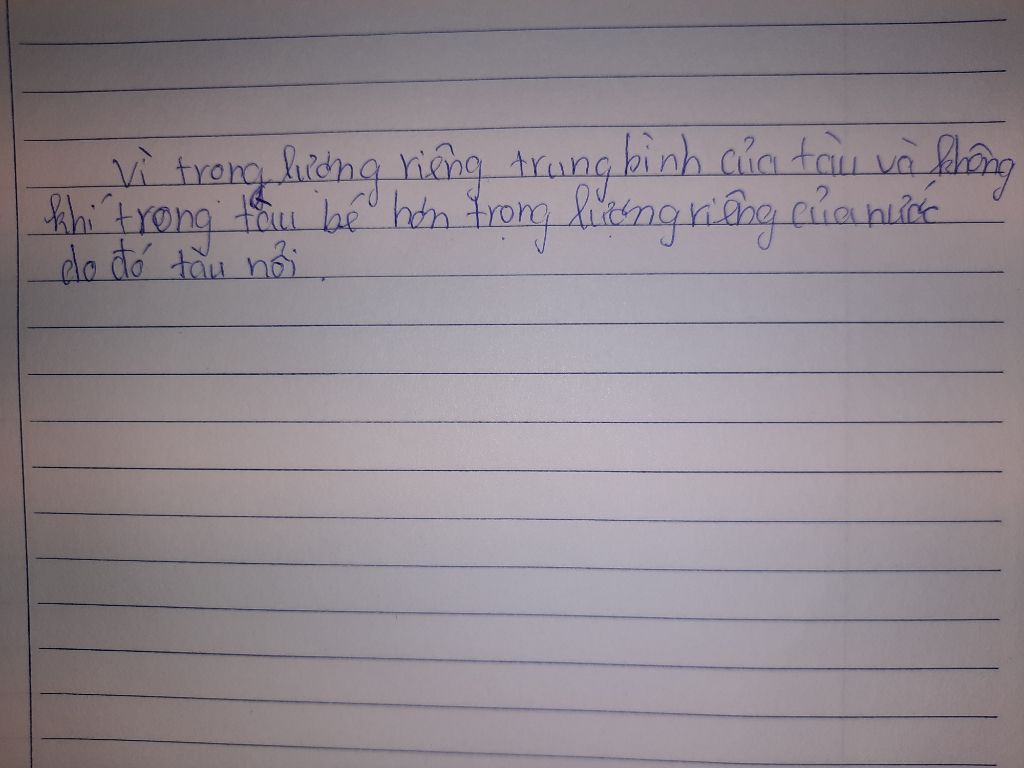 Vì trọng lượng riêng trung bình của tàu và không
khí trong tàu bé hơn trọng lượng riêng của nước
do đó tàu nổi.